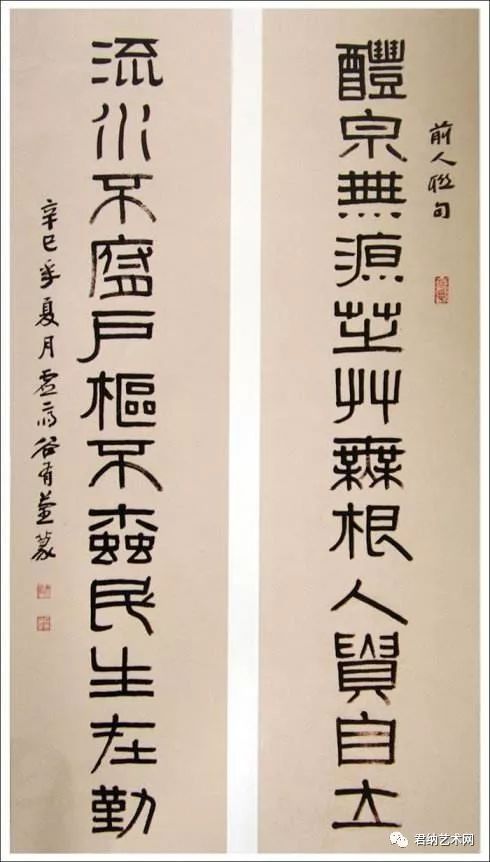 前人聯句
醴泉無源芝艸無根人貴自立
流水不腐戶樞不蠹民生在勤
辛巳年夏月虛齋谷有荃篆
君纳艺术网